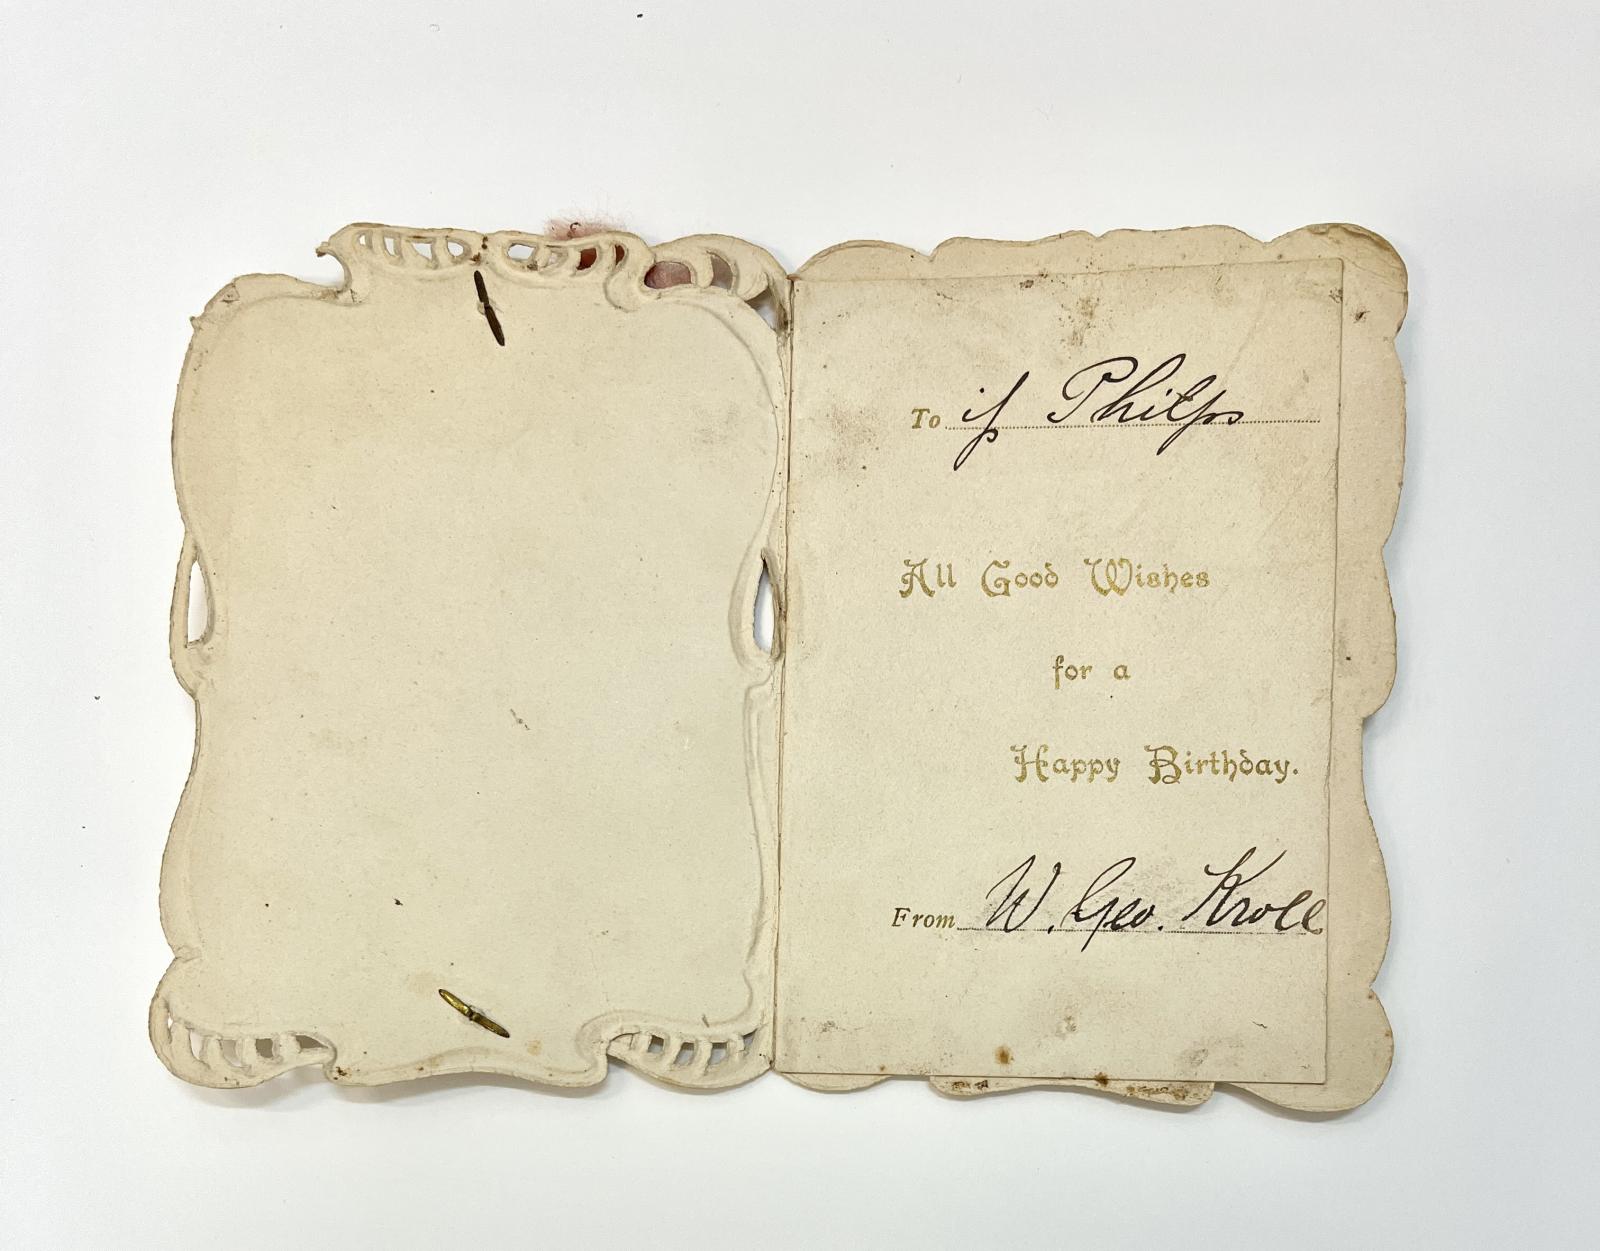 To Philps
All Good Wishes
for a
Happy Birthday.
From W. Geo. Kroll